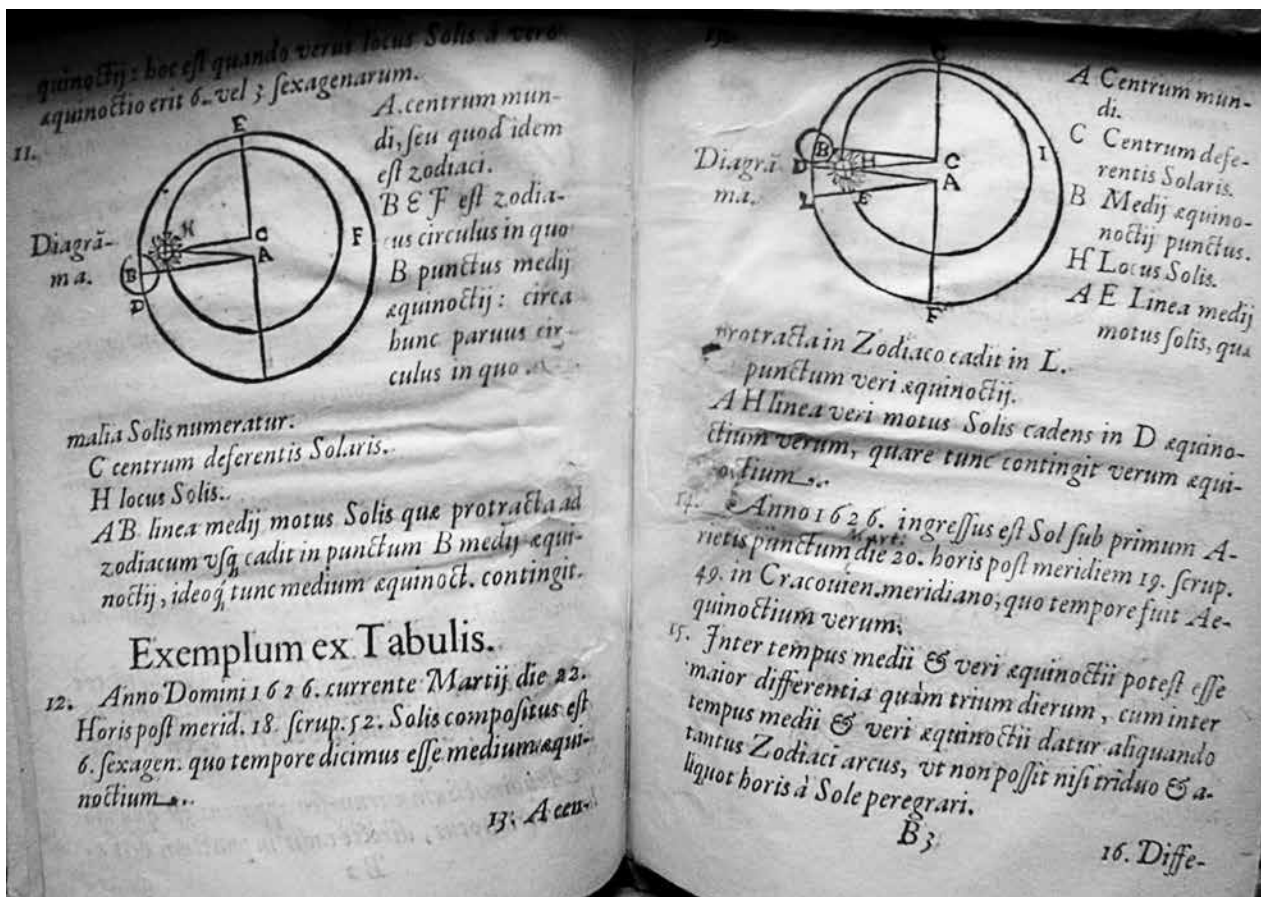 quinoctij: hoc est quando verus locus Solis à vero
æquinoctio erit 6. vel 3 sexagenarum.
11.
Diagrã-
ma.
E
H
C
A
F
B
D
A. centrum mun-
di, seu quod idem
est zodiaci.
B E F est zodia-
cus circulus in quo
B punctus medij
æquinoctij: circa
hunc paruus cir
culus in quo
malia Solis numeratur.
C centrum deferentis Solaris.
H locus Solis.
A B linea medij motus Solis quæ protracta ad
zodiacum vsq̃ cadit in punctum B medij æqui-
noctij, ideoq̃ tunc medium æquinoct. contingit.
Exemplum ex Tabulis.
12. Anno Domini 1626. currente Martij die 22.
Horis post merid. 18. scrup. 52. Solis compositus est
6. sexagen. quo tempore dicimus esse medium æqui-
noctium.
13. A cen-
Diagrã-
ma.
B
D
H
C
A
I
L
E
F
A Centrum mun-
di.
C Centrum defe-
rentis Solaris.
B Medij æquino-
noctij punctus.
H Locus Solis.
A E Linea medij
motus solis, quæ
protracta in Zodiaco cadit in L.
punctum veri æquinoctij.
A H linea veri motus Solis cadens in D æquino-
ctium verum, quare tunc contingit verum æqui-
octium.
14. Anno 1626. ingressus est Sol sub primum A-
Marti
rietis punctum die 20. horis post meridiem 19. scrup.
49. in Cracouien. meridiano, quo tempore fuit Ae-
quinoctium verum.
15. Inter tempus medii & veri æquinoctii potest esse
maior differentia quàm trium dierum, cum inter
tempus medii & veri æquinoctii datur aliquando
tantus Zodiaci arcus, vt non possit nisi triduo & a-
liquot horis à Sole peregrari.
B 3
16. Diffe-